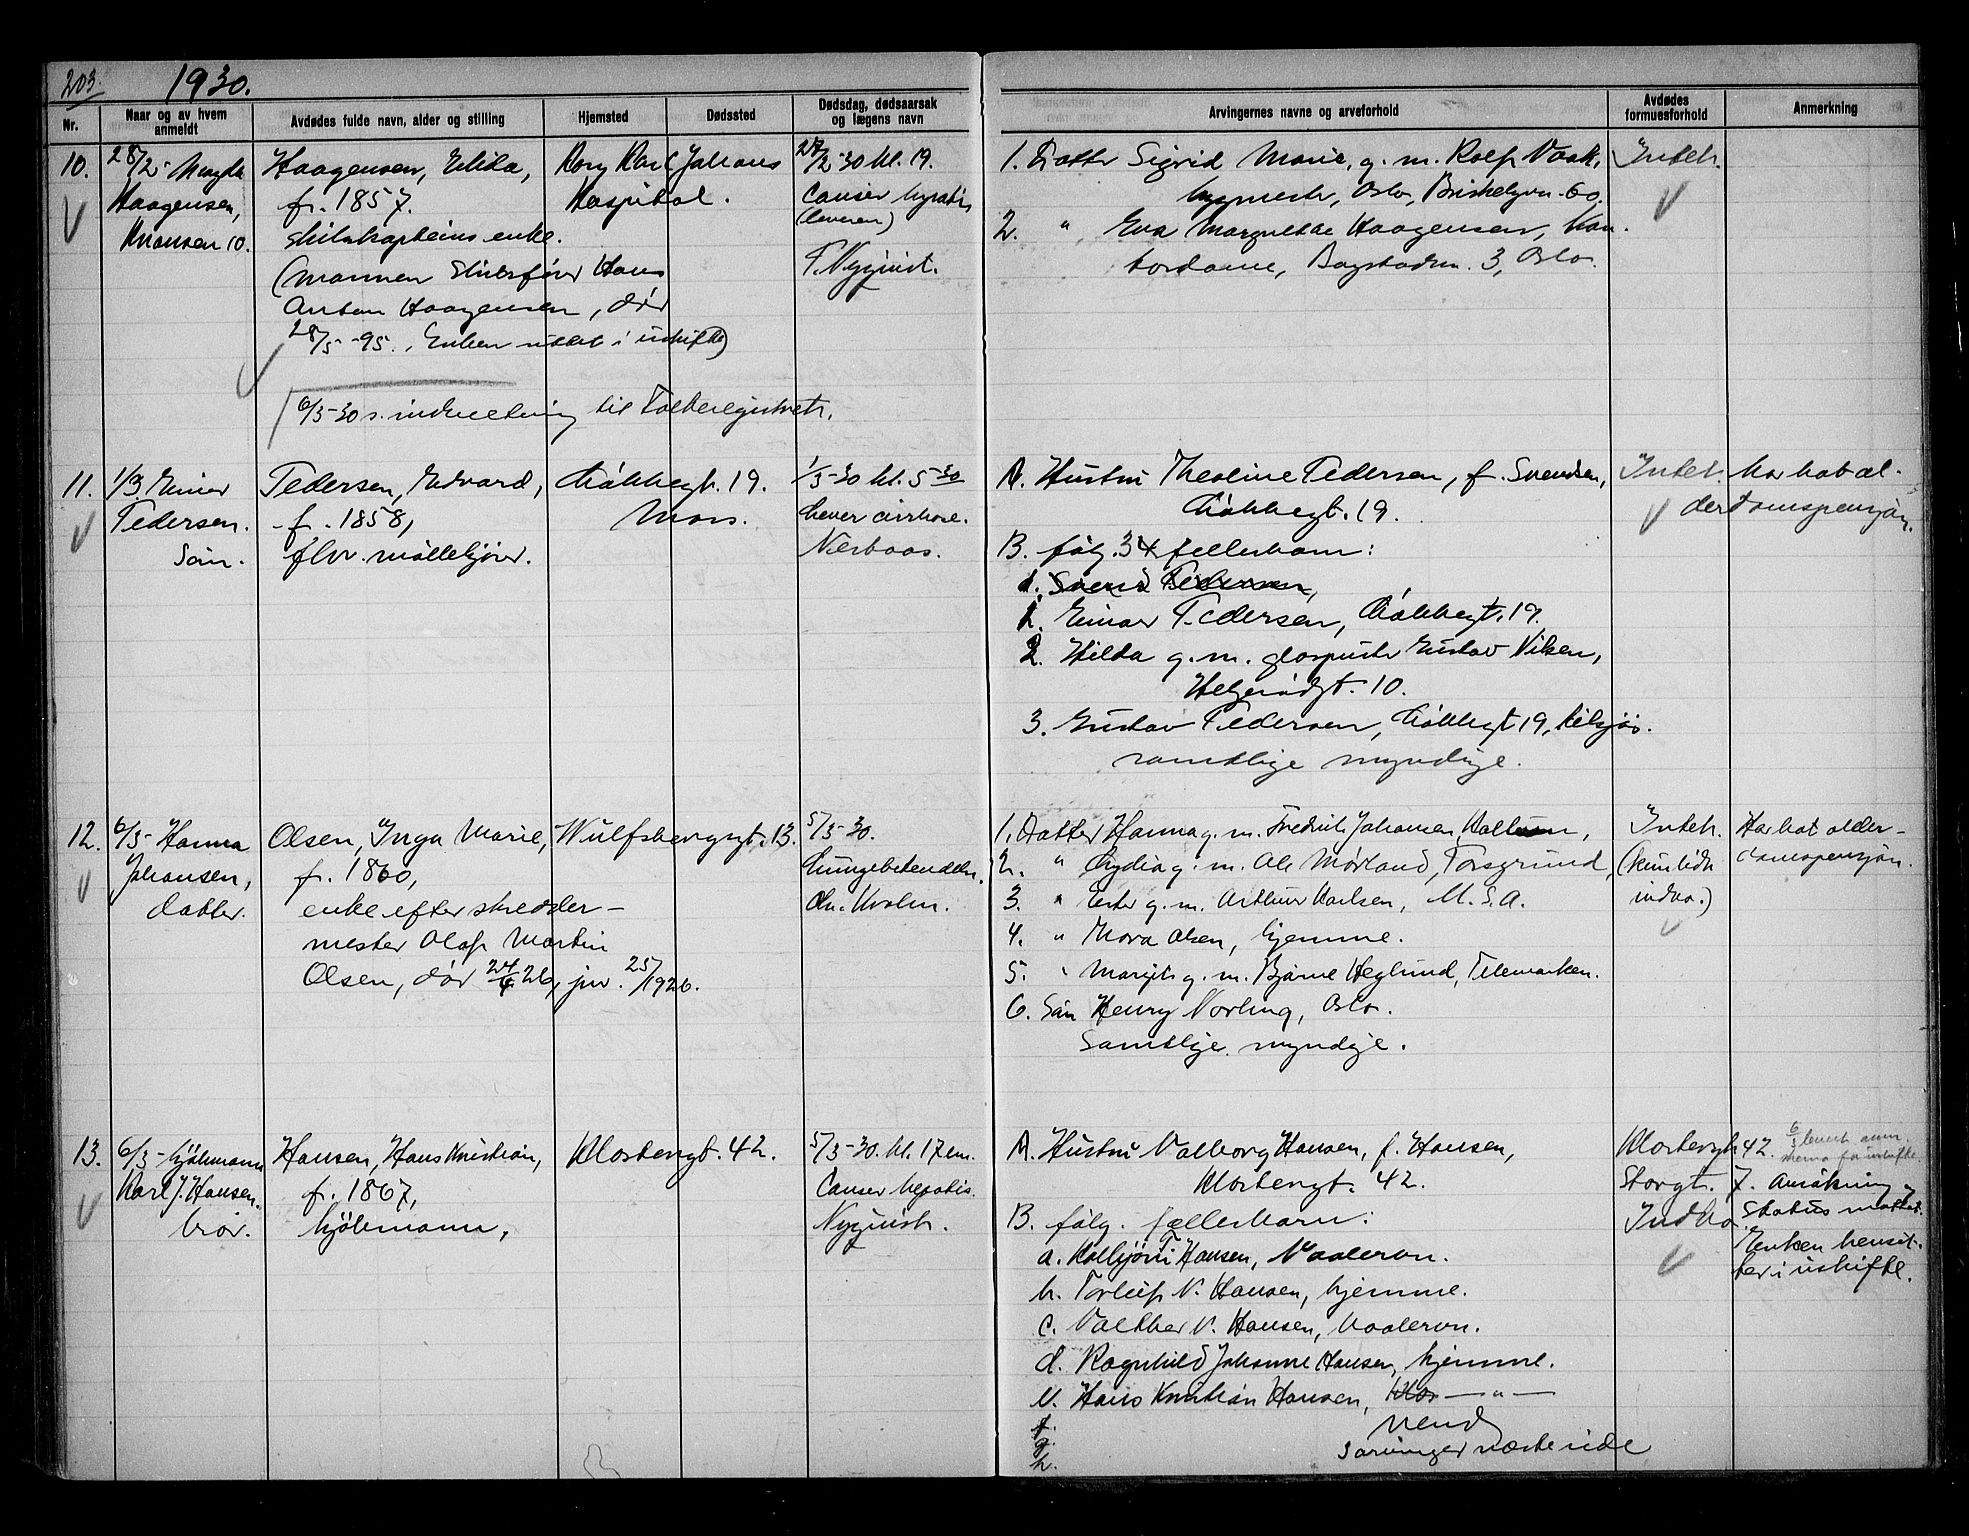 203.
1930.
Nr.
Naar og av hvem anmeldt
Avdødes fulde navn, alder og stilling
Hjemsted
Dødssted
Dødsdag, dødsaarsak og lægens navn
Arvingernes navne og arveforhold
Avdødes formuesforhold
Anmerkning
10.
28/2 - Magda
Haagensen,
Knausen 10.
Haagensen, Elida,
f. 1857.
skibskapteins enke.
(Mannen Skibsfører Hans
Anton Haagensen, død
28/5 - 95. Enken uttat i uskifte)
6/3-30 s. indberetning til Folkeregistret.
Kong Karl Johans
Hospital.
27/2-30 kl. 19.
Cancer hepatis
(leveren)
F. Nyquist.
1. Datter Sigrid Marie, g. m. Rolf Vaak,
bygmester, Oslo, Briskebyvn. 60.
2. " Eva Margrethe Haagensen, kon-
tordame, Bogstadvn. 3, Oslo.
Intet.
11.
1/3. Einar
Pedersen.
Søn.
Pedersen, Edvard,
f. 1858,
fhv. møllekjører.
Løkkegt. 19.
Moss.
1/3-30 kl. 5 30
Lever cirrhose.
Nesbaas.
A. Hustru Theoline Pedersen, f. Svendsen,
Løkkegt. 19.
B. følg. 3 4 fellesbarn:
1. Svend Pedersen,
1. Einar Pedersen, Løkkegt. 19.
2. Hilda g. m. glaspuster Gustav Nilsen,
Helgerødgt. 10.
3. Gustav Pedersen, Løkkegt 19, tilsjøs.
samtlige myndige.
Intet.
Har hat al-
derdomspensjon.
12.
6/3 - Hanna
Johansen,
datter.
Olsen, Inga Marie,
f. 1860,
enke efter skredder-
mester Olaf Martin
Olsen, død 24/4 26, jnr. 25/1926.
Wulfsbergsgt. 13.
5/3-30.
Lungebetendelse.
Chr. Kvolm.
1. Datter Hanna g. m. Fredrik Johansen,
2. " Lydia g. m. Ole Mørland, Porsgrund,
3. " Ester g. m. Arthur Karlsen, U. S. A.
4. " Mora Olsen, hjemme.
5. " Margit g. m. Bjarne Heglund, Telemarken.
6. Søn Henry Norling, Oslo.
Samtlige myndige.
Intet.
(kun lidt
indbo.)
Har hat alder-
domspensjon.
13.
6/3 - kjøbmann
Karl J. Hansen.
bror.
Hansen, Hans Kristian,
f. 1867,
kjøbmann,
Klostergt. 42.
5/3-30. kl. 17 em.
Cancer hepatis.
Nyquist.
A. Hustru Valborg Hansen, f. Hansen,
Klostergt. 42.
B. følg. fællesbarn:
a. Kolbjørn Hansen, Vaalervn.
b. Torleif N. Hansen, hjemme.
c. Valther N. Hansen, Vaalervn.
d. Ragnhild Johanne Hansen, hjemme.
e. Hans Kristian Hansen, — " —
f.
g.
h.
Vend
s arvinger næste side
Klostergt 42.
Storgt. 7.
Indbo.
Ansøkning
Status mottat.
Enken hensit-
ter i uskifte.